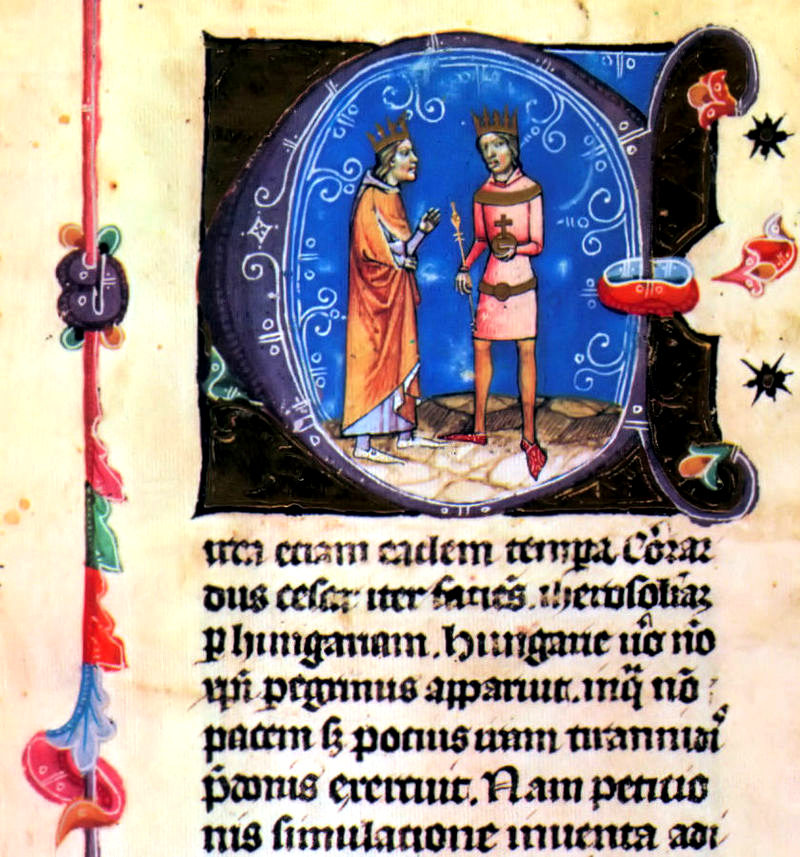 C
irca etiam eadem tempa. Corar
dus cesar iter facies. iherosolimaz
p hungariam. hungarie uo no
xpi pegrinus apparuit. inq no
pacem sz pocius uiam tirannidi
pdonis exercuit. Nam peticio
nis simulacione inuenta adi